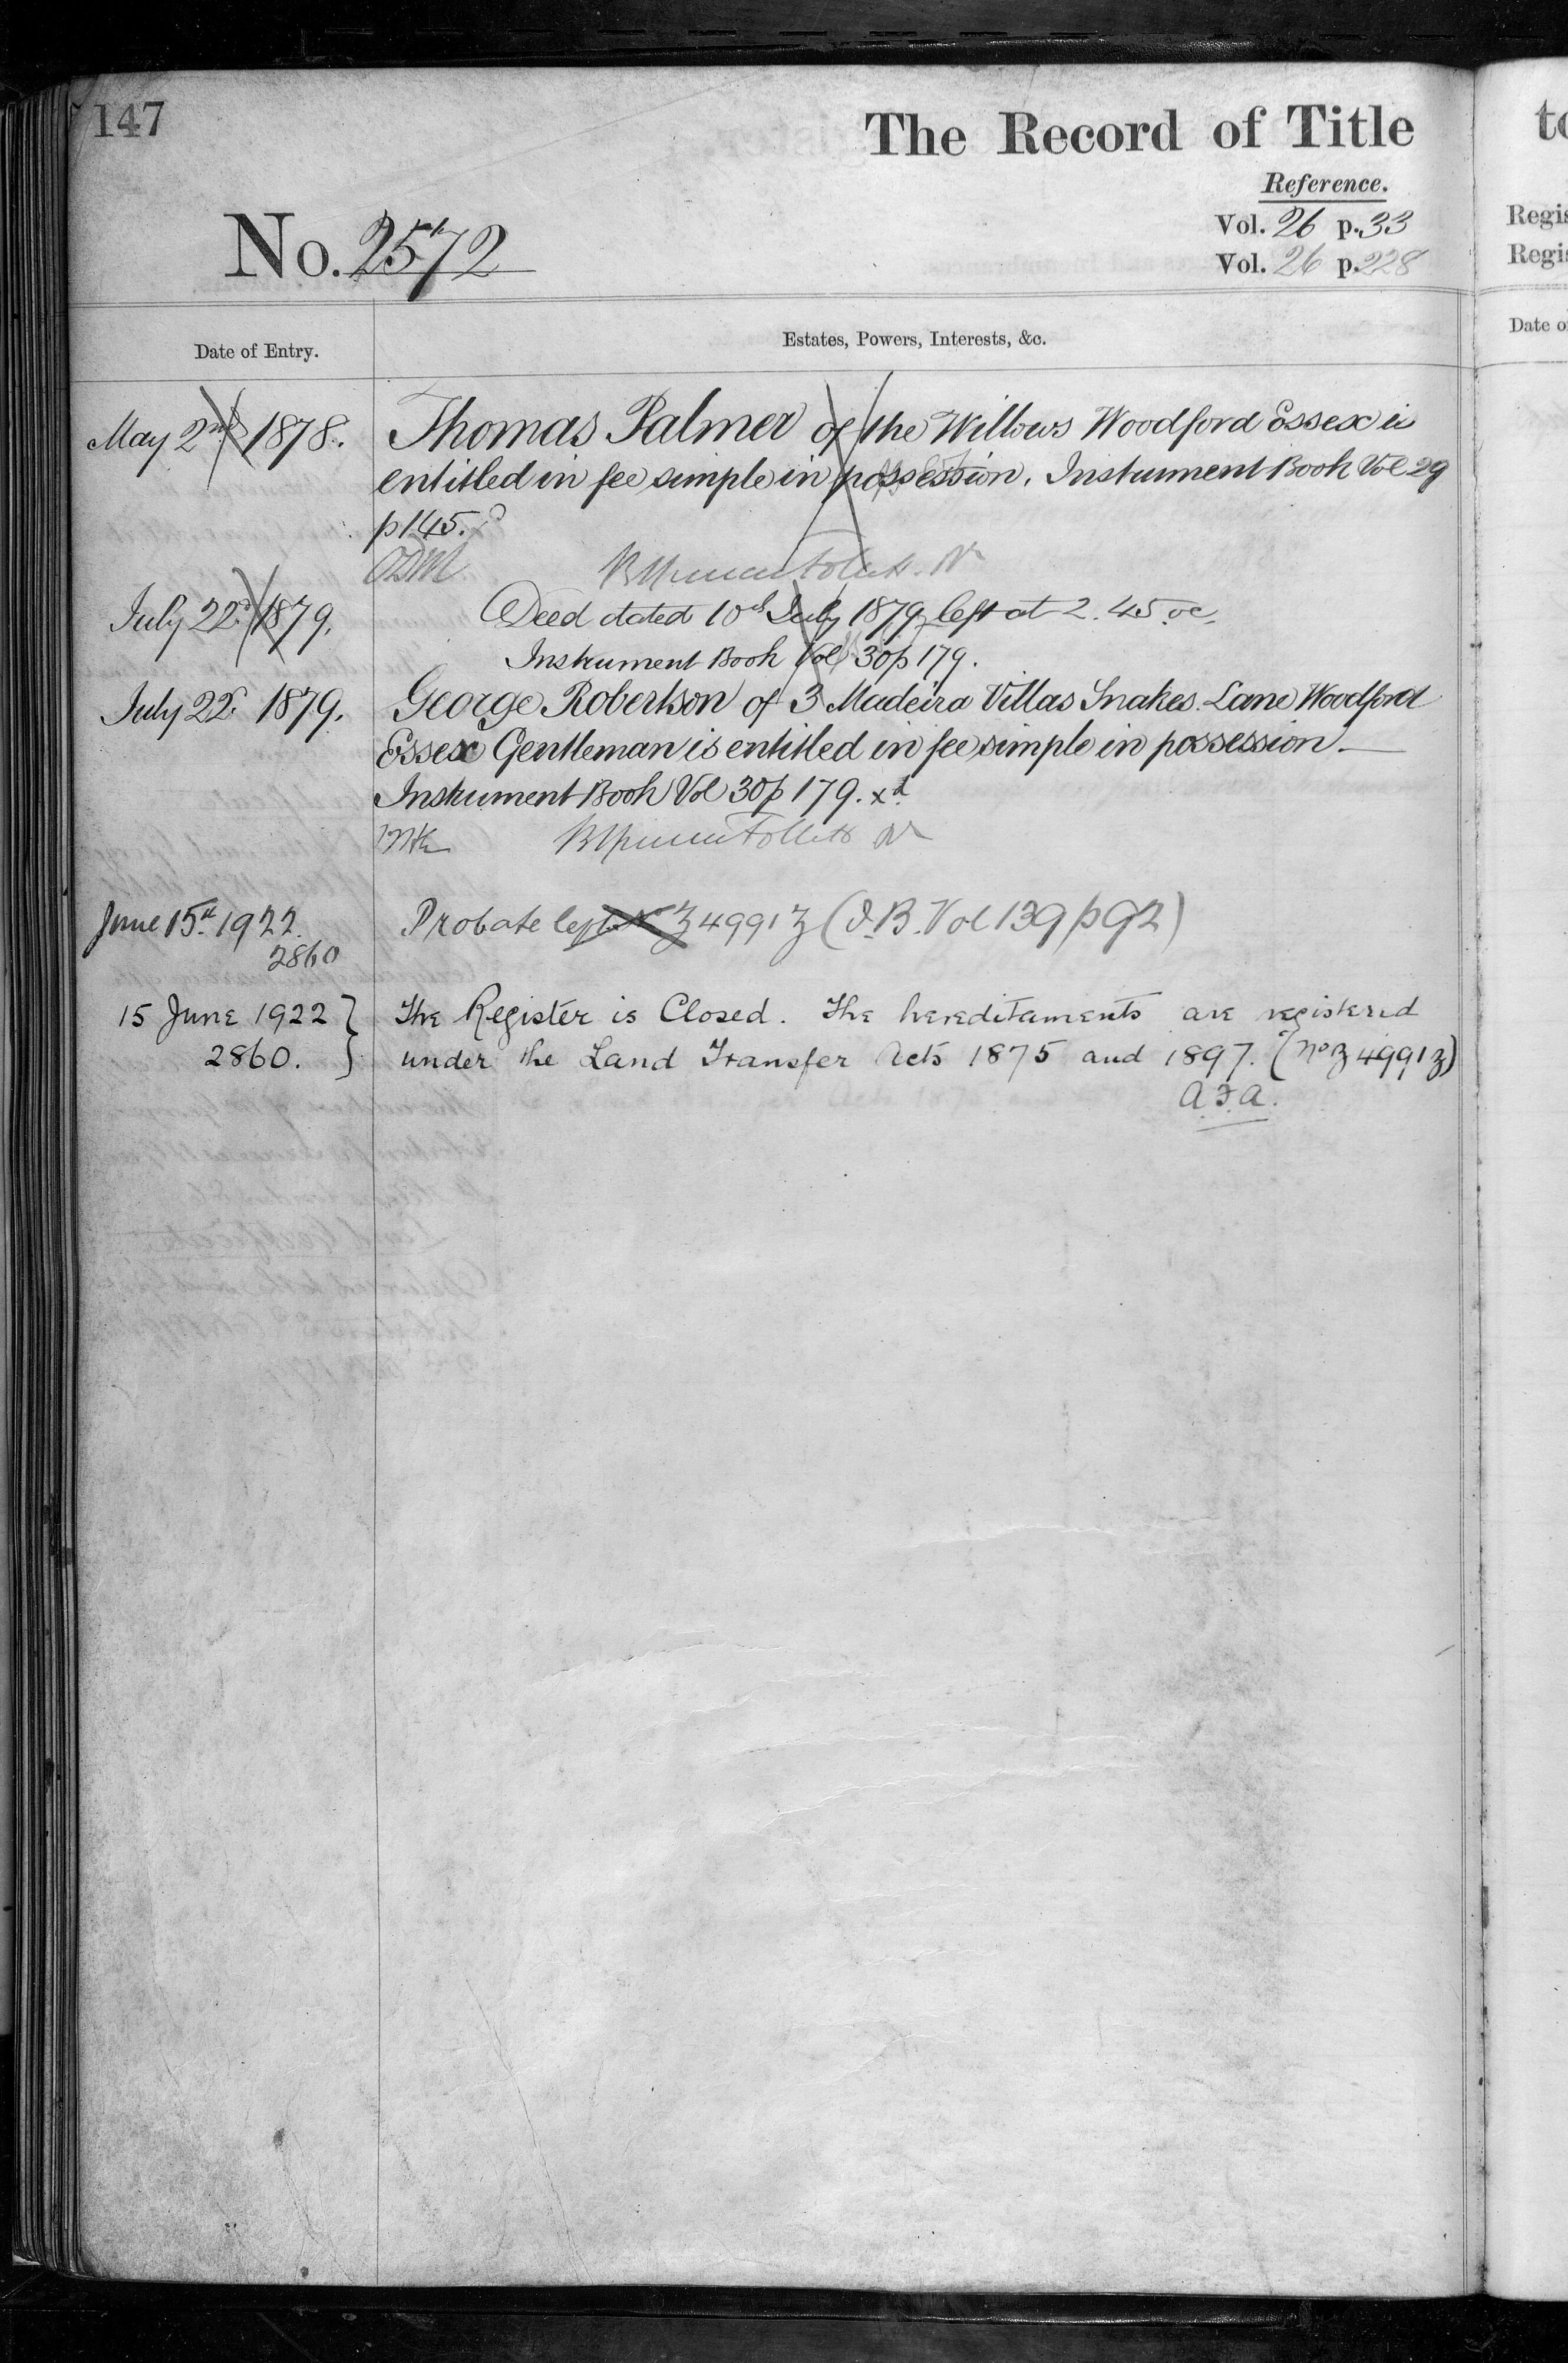 147
The Record of Title
Reference.
Vol. 26 p. 33
Vol. 26 p. 228
No. 2572
Date of Entry.
Estates, Powers, Interests, &c.
May 2nd 1878.
Thomas Palmer of the Willows Woodford Essex is
entitled in fee simple in possession. Instrument Book Vol 29
p 145.
July 22d 1879.
Deed dated 10th July 1879 left at 2.45 oc.
Instrument Book Vol 30 p 179.
July 22d 1879.
George Robertson of 3 Madeira Villas Snakes Lane Woodford
Essex Gentleman is entitled in fee simple in possession —
Instrument Book Vol 30 p 179. xd
June 15th 1922.
2860
Probate left No Z 4991 Z (I.B. Vol 139 p 92)
15 June 1922 }
2860. }
The Register is Closed. The hereditaments are registered
under the Land Transfer Acts 1875 and 1897. (No Z 4991 Z)
to
Regis
Regis
Date o